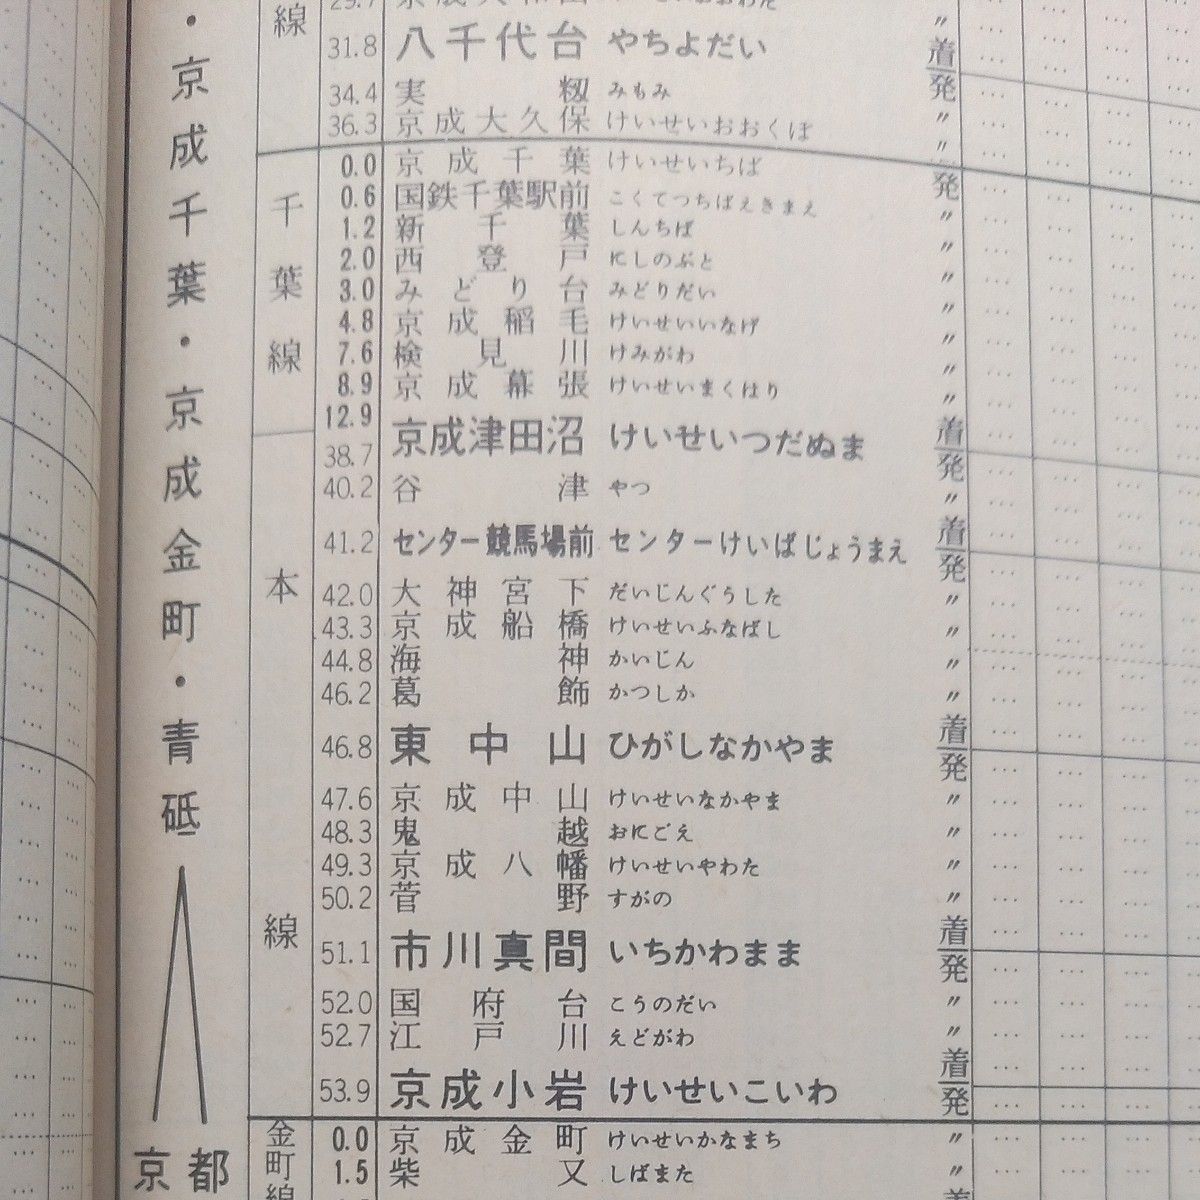 ・京成千葉・京成金町・青砥
京都
線
千葉線
本線
金町線
31.8 八千代台 やちよだい 〃 着
34.4 実籾 みもみ 発
36.3 京成大久保 けいせいおおくぼ 〃
0.0 京成千葉 けいせいちば 発
0.6 国鉄千葉駅前 こくてつちばえきまえ 〃
1.2 新千葉 しんちば 〃
2.0 西登戸 にしのぶと 〃
3.0 みどり台 みどりだい 〃
4.8 京成稲毛 けいせいいなげ 〃
7.6 検見川 けみがわ 〃
8.9 京成幕張 けいせいまくはり 〃
12.9
38.7 京成津田沼 けいせいつだぬま 着 発
40.2 谷津 やつ 〃
41.2 センター競馬場前 センターけいばじょうまえ 着 発
42.0 大神宮下 だいじんぐうした 〃
43.3 京成船橋 けいせいふなばし 〃
44.8 海神 かいじん 〃
46.2 葛飾 かつしか 〃
46.8 東中山 ひがしなかやま 着 発
47.6 京成中山 けいせいなかやま 〃
48.3 鬼越 おにごえ 〃
49.3 京成八幡 けいせいやわた 〃
50.2 菅野 すがの 〃
51.1 市川真間 いちかわまま 着 発
52.0 国府台 こうのだい 〃
52.7 江戸川 えどがわ 〃
53.9 京成小岩 けいせいこいわ 着 発
0.0 京成金町 けいせいかなまち 〃
1.5 柴又 しばまた 〃